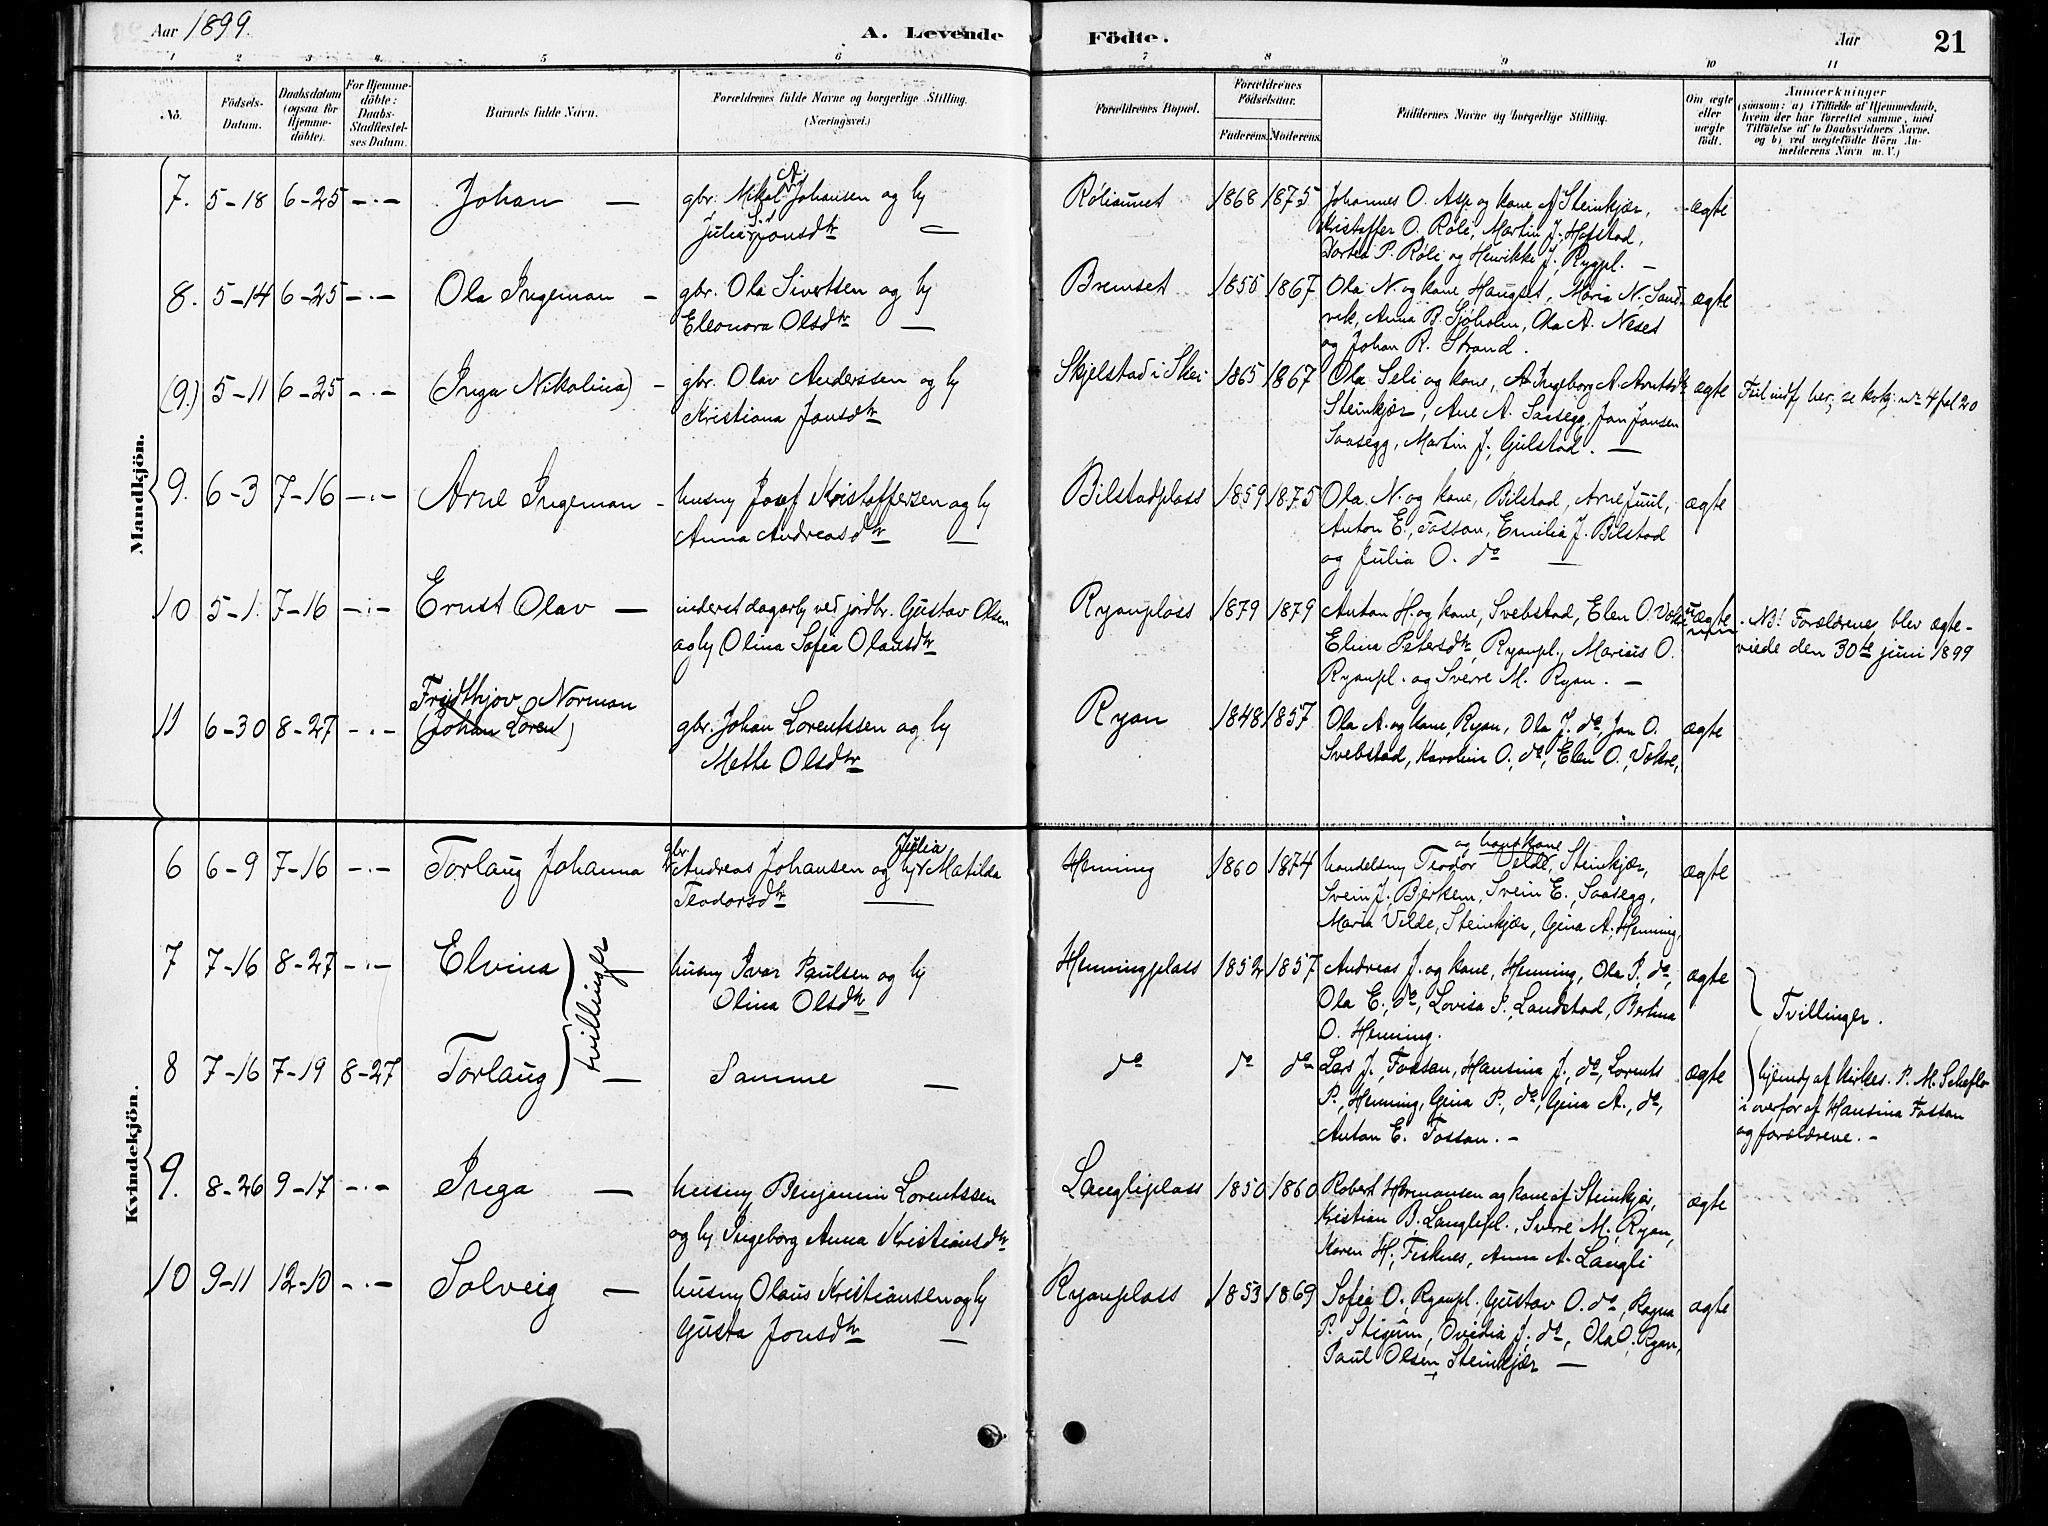 Aar 1899. A. Levende Födte. Aar 21
1 2 3 4. 5 6 7 8 9 10 11
No. Födsels-Datum. Daabsdatum (ogsaa for Hjemmedöbte). For Hjemmedöbte: Daabs-Stadfæstelses Datum. Barnets fulde Navn. Forældrenes fulde Navne og borgerlige Stilling. (Næringsvei.) Forældrenes Bopæl. Forældrenes Födselsaar. Faderens. Moderens. Faddernes Navne og borgerlige Stilling. Om ægte eller uægte födt. Anmærkninger (saasom: a) i Tilfælde af Hjemmedaab, hvem der har forrettet samme, med Tilföielse af to Daabsvidners Navne, og b) ved uægtefödte Börn Anmelderens Navn m. V.)
Mandkjön.
7. 5-18 6-25 -.- Johan — gbr. Nikol. A. Johansen og hu Røliaunet 1868 1875 Johannes O. Asp og kone af Steinkjær, ægte
Julia Jonsdtr — Kristoffer O. Røli, Martin J. Hofstad,
Dortea P. Røli og Henrikke J. Rygpl. —
8. 5-14 6-25 -.- Ola Ingeman — gbr. Ola Sivertsen og hu Bremset 1855 1867 Ola N. og kone Haugset, Maria N. Sand- ægte
Eleonora Olsdtr — vik, Anna B. Sjøholm, Ola A. Neset
og Johan R. Strand.
(9.) 5-11 6-25 -.- (Inga Nikolina) — gbr. Olav Anderssen og hu Skjelstad i Skei 1865 1867 Ola Seli og kone, Ingeborg A. Arntsdtr ægte Feil indf. her, se kvkj. nr 4 fol 20
Kristiana Jonsdtr Steinkjær, Ane A. Saasegg, Jon Jonsen
Saasegg, Martin J. Gulstad. —
9. 6-3 7-16 -.- Arne Ingeman — husmd Josef Kristoffersen og hu Bilstadplass 1859 1875 Ola N. og kone, Bilstad, Arne Juul, ægte
Anna Andreasdtr — Anton E. Fossan, Emilia J. Bilstad
og Julia O. do —
10 5-1. 7-16 -.- Ernst Olav — inderst dagarb ved jordbr. Gustav Olsen Ryanplass 1879 1879 Anton H. og kone, Svebstad, Elen O. Vekre uægte NB! Forældrene blev ægte-
og hu Olina Sofia Olausdtr Elina Petersdtr, Ryanpl., Marius O. viede den 30te juni 1899
Ryanpl. og Sverre M. Ryan. —
Fridthjov Norman
11 6-30 8-27 -.- (Johan Loren) gbr. Johan Lorentssen og hu Ryan 1848 1857 Ola A. og kone, Ryan, Ola J. do, Jon O. ægte
Mette Olsdtr Svebstad, Karolina O., do, Elen O., Vekre,
Kvindekjön.
6 6-9 7-16 -.- Torlaug Johanna gbr. Andreas Johansen og hu Julia Matilda Henning 1860 1874 handelsmd Teodor Velde og hans kone, Steinkjær, ægte
Teodorsdtr — Svein J. Bjerkem, Svein E. Saasegg,
Maria Velde, Steinkjær, Gina A. Henning,
7 7-16 8-27 -.- Elvina tvillinger husmd Ivar Paulsen og hu Henningplass 1852 1857 Andreas J. og kone, Henning, Ola P. do, ægte
Olina Olsdtr Ola E., do, Lovisa P. Landstad, Bertina Tvillinger.
O. Henning.
8 7-16 7-19 8-27 Torlaug — Samme — do do do Lars J., Fossan, Hansina J., do, Lorents ægte hjemdj af Kirkes. P. M. Scheflo
P., Henning, Gina P., do, Gina A., do, i overvær af Hansina Fossan
Anton E. Fossan. — og forældrene. —
9. 8-26 9-17 -.- Inga — husmd Benjamin Lorentssen Langliplass 1850 1860 Robert Hermansen og kone af Steinkjær, ægte
og hu Ingeborg Anna Kristiansdtr Kristian B. Langlipl., Sverre M. Ryan,
Karen H. Fisknes, Anna A. Langli
10 9-11 12-10 -.- Solveig — husmd Olaus Kristiansen og hu Ryanplass 1853 1869 Sofia O. Ryanpl. Gustav O. do, Ragna ægte
Gusta Jonsdtr — P. Stigum, Ovidia J. do, Ola O. Ryan,
Paul Olsen Steinkjær —